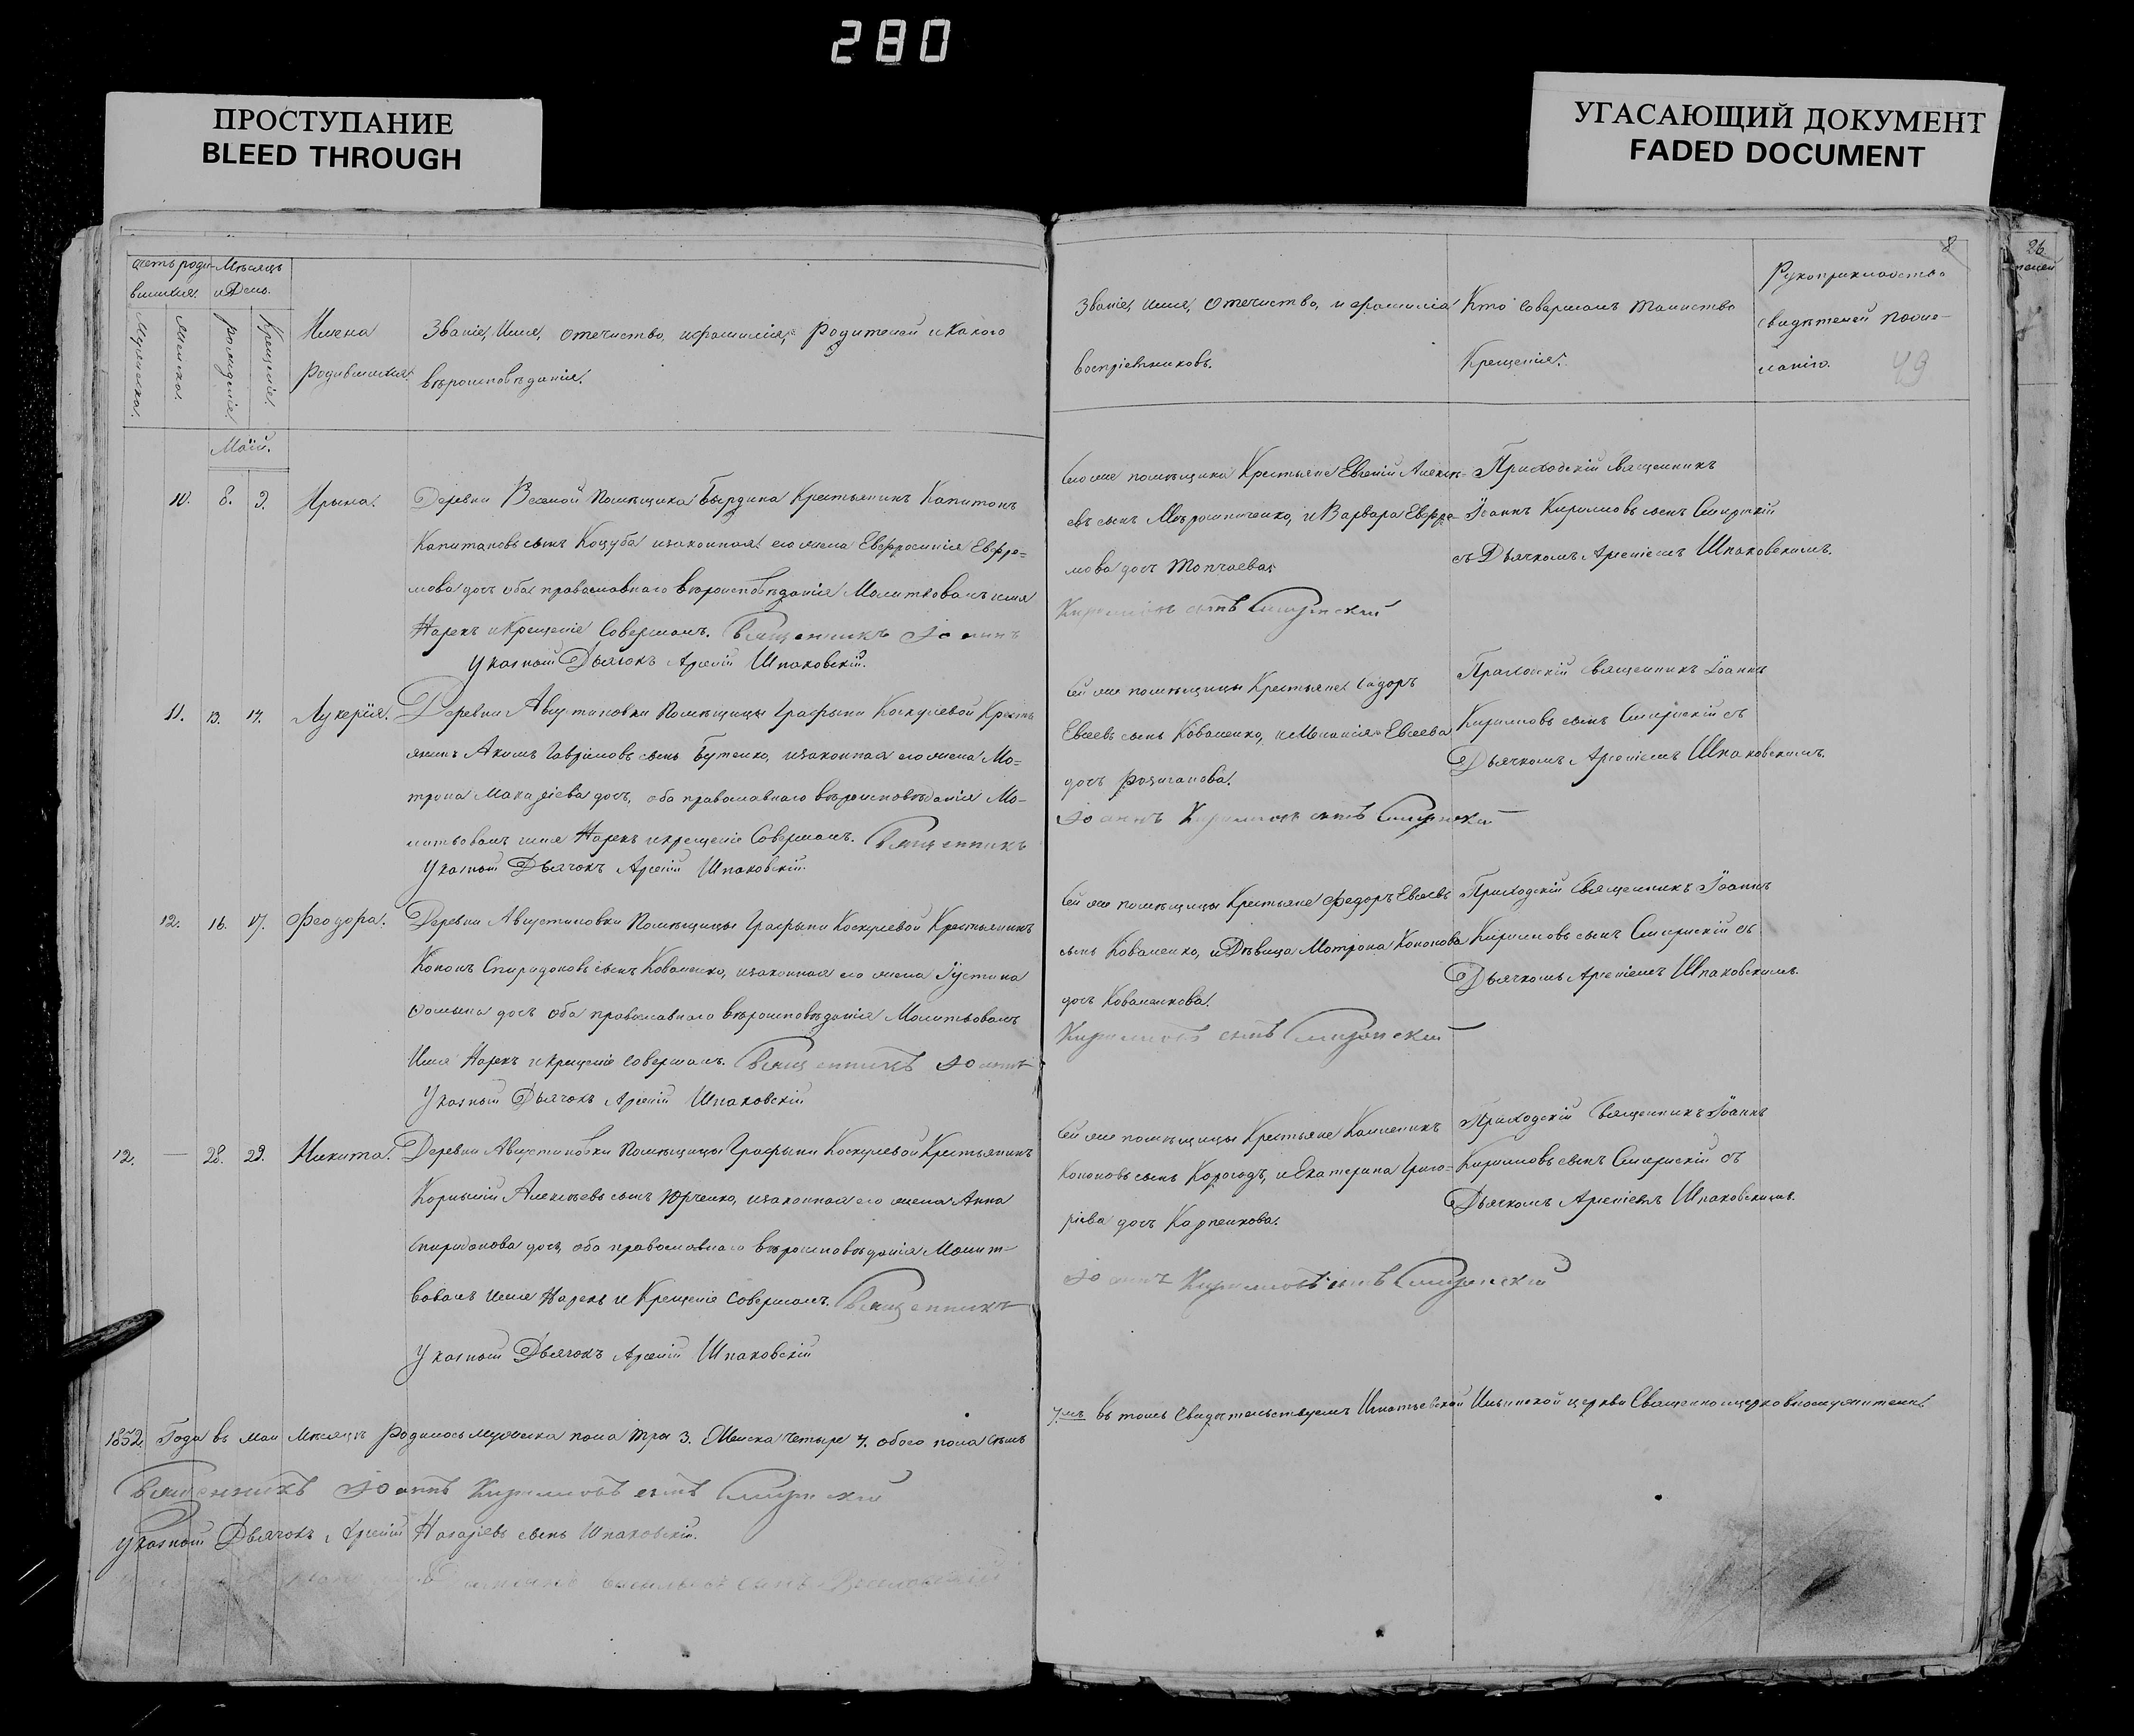 280
ПРОСТУПАНИЕ
BLEED THROUGH
УГАСАЮЩИЙ ДОКУМЕНТ
FADED DOCUMENT
Мѣсяцъ
и День.
Имена
родившихся.
Званіе, Имя, отечиство, и фамилія, родителей и какого
вѣроисповѣданія.
Мужеска.
Женска.
рожденія.
Крещенія.
Маій.
10. 8. 9. Ирына.
Деревни Веселой помѣщика Бырдина Крестьянинъ Капитонъ
Капитоновъ сынъ Коцуба и законная его жена Евфросинія Ефре=
мова дочь оба православнаго вѣроисповѣданія Молитвовалъ имя
Нарекъ и Крещеніе Совершалъ. Священникъ Іоаннъ
Указный Дьячокъ Арсеній Шпаковскій.
11. 13. 14. Лукерія.
Деревни Августиновки Помѣщицы Графыни Коскулевой Кресть
янинъ Акимъ Гаврѣловъ сынъ Бутенко, и законная его жена Мо=
трона Макаріева дочь, оба православнаго вѣроисповѣданія Мо-
литвовалъ имя Нарекъ и крещеніе Совершалъ. Священникъ
Указный Дьячокъ Арсеній Шпаковскій.
12. 16. 17. Феодора.
Деревни Августиновки Помѣщицы Графыни Коскулевой Крестьянинъ
Кононъ Спиридоновъ сынъ Коваленко, и законная его жена Іустина
Фомына дочь оба православнаго вѣроисповѣданія Молитвовалъ
Имя Нарекъ и крещеніе совершалъ. Священникъ Іоаннъ
Указный Дьячокъ Арсеній Шпаковскій
12. — 28. 29. Никита.
Деревни Августиновки Помѣщицы Графыни Коскулевой Крестьянинъ
Корнылій Алексѣевъ сынъ Юрченко, и законная его жена Анна
Спиридонова дочь, оба православнаго вѣроисповѣданія Молит-
вовалъ имя Нарекъ и Крещеніе Совершалъ. Священникъ
Указный Дьячокъ Арсеній Шпаковскій
1852 Года въ Маи Мѣсяцѣ родилось мужеска пола три 3. Женска четыре 4. обоего пола семь
Священникъ Іоаннъ Кириловъ сынъ Смирнскій
Указный Дьячокъ Арсеній Назаріевъ сынъ Шпаковскій.
8
26
Званіе, имя, отечиство, и фамилія
воспріемниковъ.
Кто совершалъ таинство
Крещенія.
Рукоприкладство
свидѣтелей по же-
ланію.
49
его же помѣщика Крестьяне Евгеній Алексѣ-
евъ сынъ Мѣрошниченко, и Варвара Ефре-
мова дочь Топчаева.
Кириловъ сынъ Смирнскій
Приходскій священникъ
Іоаннъ Кириловъ сынъ Смирнскій
съ Дьячкомъ Арсеніемъ Шпаковскимъ.
Сей же помѣщицы Крестьяне Сидоръ
Евсеевъ сынъ Коваленко, и Меланія Евсеева
дочь
Іоаннъ Кириловъ сынъ Смирнскій
Приходскій священникъ Іоаннъ
Кириловъ сынъ Смирнскій съ
Дьячкомъ Арсеніемъ Шпаковскимъ.
Сей же помѣщицы Крестьяне Федоръ Евсеевъ
сынъ Коваленко, и Дѣвица Мотрона Кононова
дочь Коваленкова.
Кириловъ сынъ Смирнскій
Приходскій Священникъ Іоаннъ
Кириловъ сынъ Смирнскій съ
Дьячкомъ Арсеніемъ Шпаковскимъ.
Сей же помѣщицы Крестьяне Калиникъ
Кононовъ сынъ Корогодъ, и Екатерина Григо=
ріева дочь Карпенкова.
Іоаннъ Кириловъ сынъ Смирнскій
Приходскій Священникъ Іоаннъ
Кириловъ сынъ Смирнскій съ
Дьячкомъ Арсеніемъ Шпаковскимъ.
7.мъ въ томъ свидетельствуемъ Игнатьевской Ильинской церкви Священноицерковнослужители.